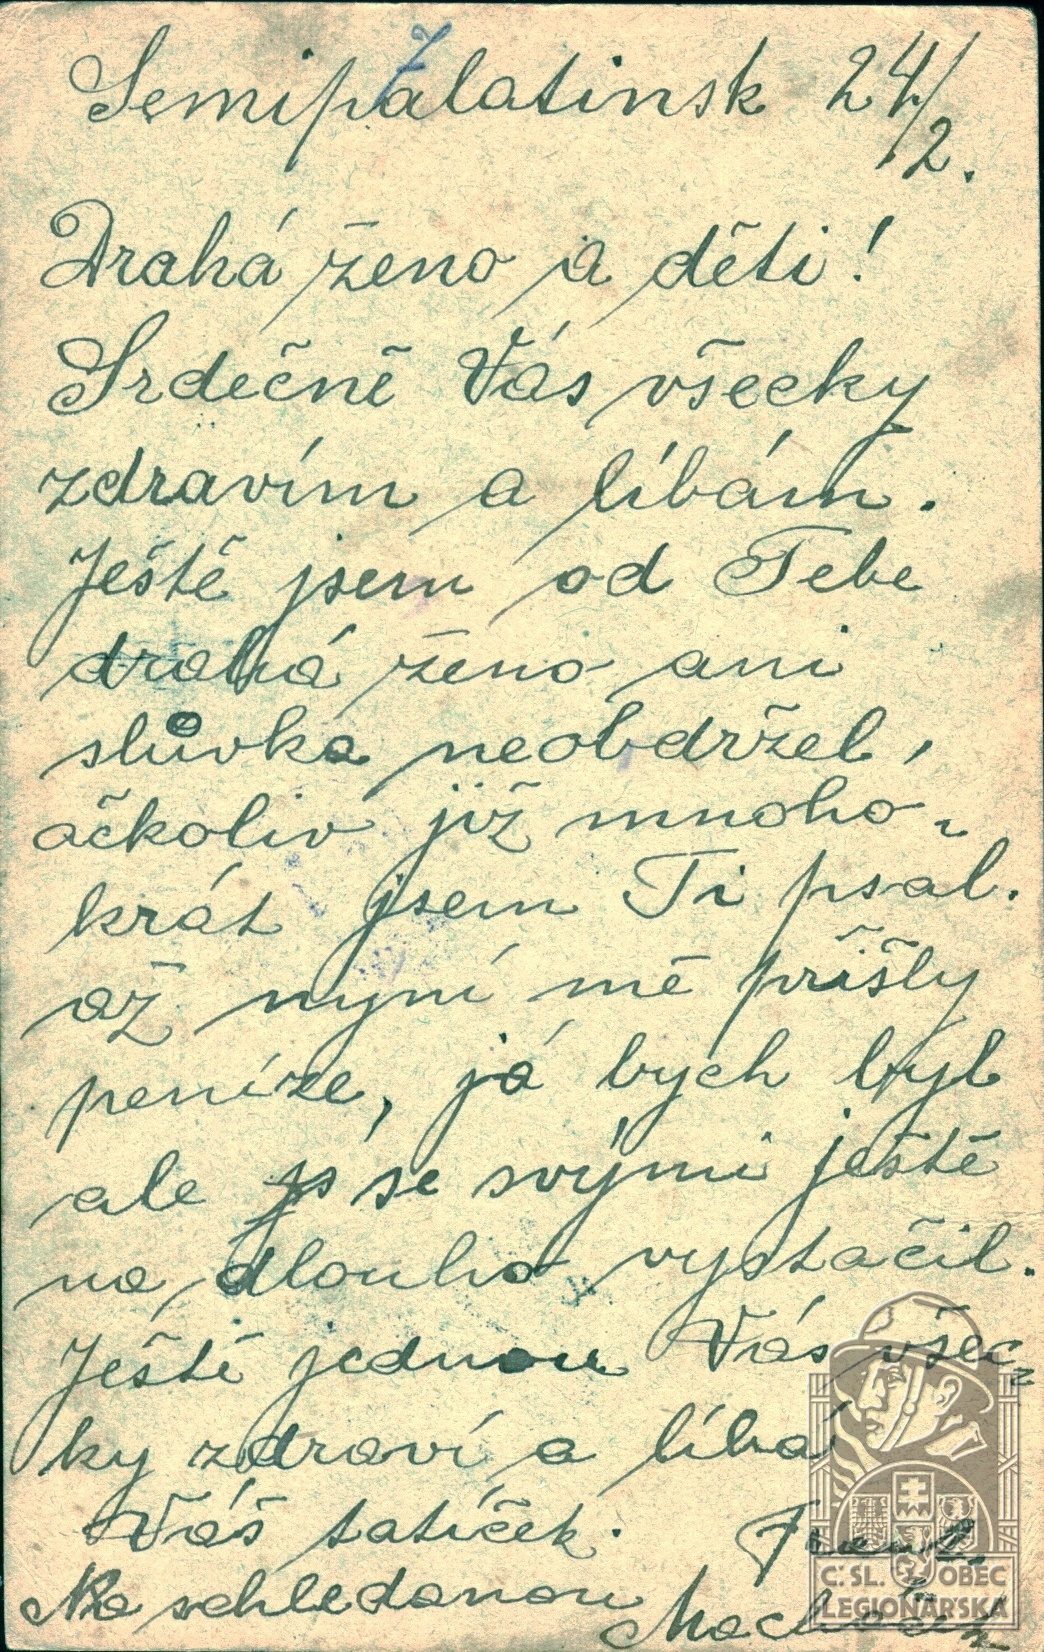 Semipalatinsk 24/2.
Drahá ženo a děti!
Srdečně Vás všecky
zdravím a líbám.
Ještě jsem od Tebe
drahá ženo ani
slůvka neobdržel,
ačkoliv již mnoho-
krát jsem Ti psal.
až nyní mě přišly
peníze, já bych byl
ale se svými ještě
na dlouho vystačil.
Ještě jednou Vás všec-
ky zdraví a líbá
Váš tatíček.
Na schledanou
Č. SL. OBEC
LEGIONÁŘSKÁ